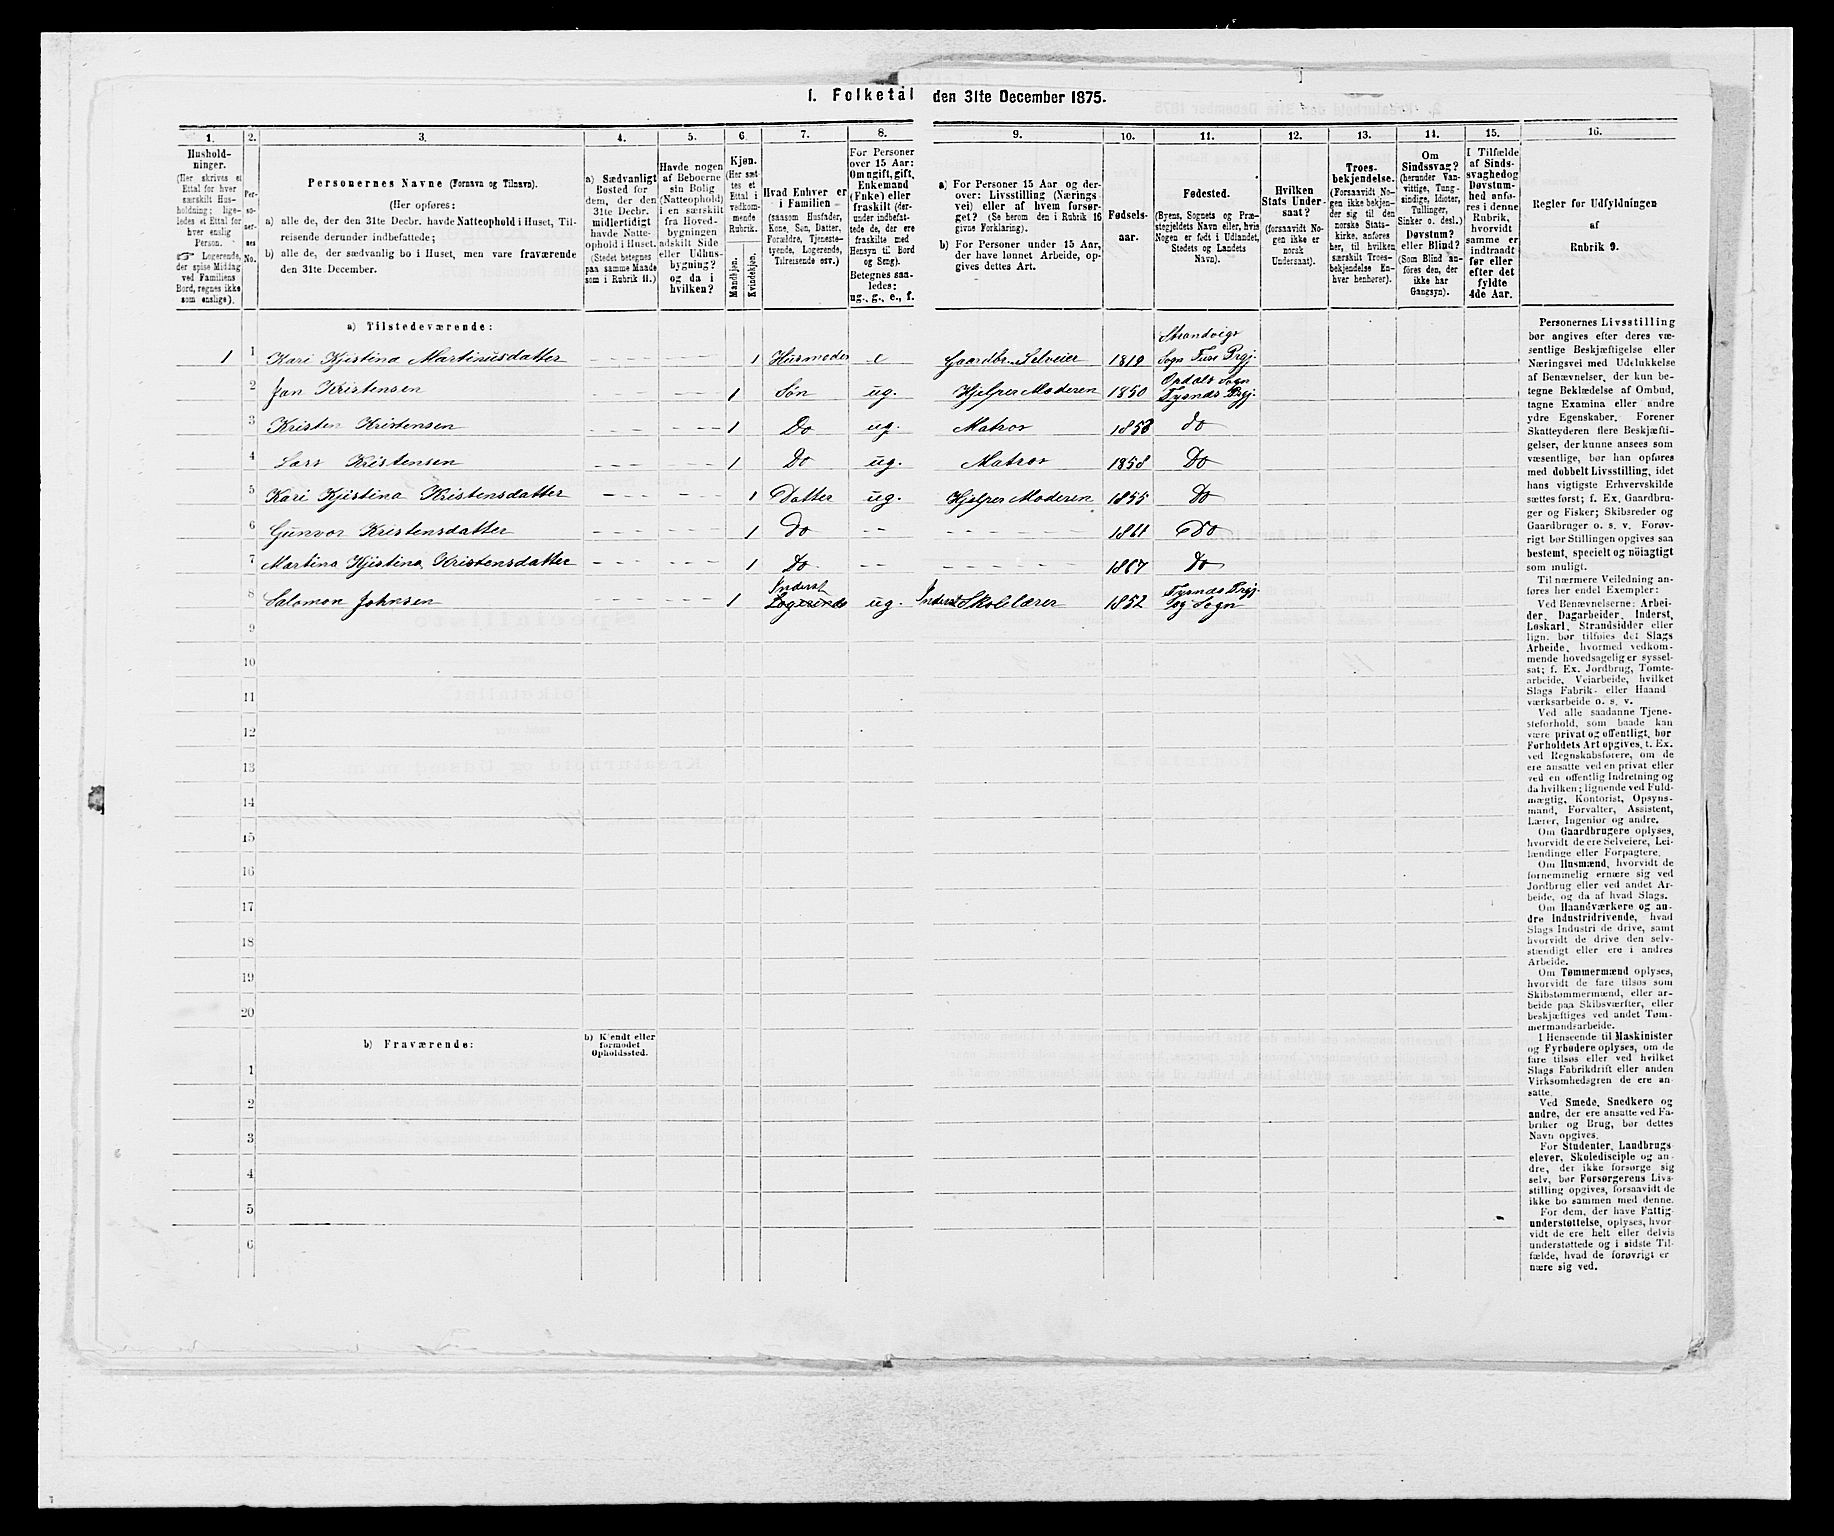 I. Folketal den 31te December 1875.
1.
2.
3.
4.
5.
6.
7.
8.
9.
10.
11.
12.
13.
14.
15.
16.
Hushold-
ninger.
(Her skrives et
Ettal for hver
særskilt Hus-
holdning; lige-
ledes et Ettal for
hver enslig
Person.
☞ Logerende,
der spise Middag
ved Familiens
Bord, regnes ikke
som enslige).
Per-
so-
ner-
nes
No.
Personernes Navne (Fornavn og Tilnavn).
(Her opføres:
a) alle de, der den 31te Decbr. havde Natteophold i Huset, Til-
reisende derunder indbefattede;
b) alle de, der sædvanlig bo i Huset, men vare fraværende
den 31te December.
a) Sædvanligt
Bosted for
dem, der den
31te Decbr.
midlertidigt
havde Natte-
ophold i Huset.
(Stedet betegnes
paa samme Maade
som i Rubrik 11.)
Havde nogen
af Beboerne
sin Bolig
(Natteophold)
i en særskilt
fra Hoved-
bygningen
adskilt Side
eller Udhus-
bygning?
og da i
hvilken?
Kjøn.
(Her sæt-
tes et
Ettal i
vedkom-
mende
Rubrik.
Mandkjøn.
Kvindekjøn.
Hvad Enhver er
i Familien
(saasom Husfader,
Kone, Søn, Datter,
Forældre, Tjeneste-
tyende, Logerende,
Tilreisende osv.)
For Personer
over 15 Aar:
Om ugift, gift,
Enkemand
(Enke) eller
fraskilt (der-
under indbefat-
tede de, der ere
fraskilte med
Hensyn til Bord
og Seng).
Betegnes saa-
ledes:
ug., g., e., f.
a) For Personer 15 Aar og der-
over: Livsstilling (Nærings-
vei) eller af hvem forsør-
get? (Se herom den i Rubrik 16
givne Forklaring).
b) For Personer under 15 Aar,
der have lønnet Arbeide, op-
gives dettes Art.
Fødsels-
aar.
Fødested.
(Byens, Sognets og Præ-
stegjeldets Navn eller, hvis
Nogen er født i Udlandet,
Stedets og Landets
Navn).
Hvilken
Stats Under-
saat?
(forsaavidt No-
gen ikke er
norsk
Undersaat).
Troes-
bekjendelse.
(Forsaavidt No-
gen ikke bekjen-
der sig til den
norske Stats-
kirke, anføres
her, til hvilken
særskilt Troes-
bekjendelse En-
hver henhører).
Om
Sindssvag?
(herunder Van-
vittige, Tung-
sindige, Idioter,
Tullinger,
Sinker o. desl.)
Døvstum?
eller Blind?
(Som Blind an-
føres den, der
ikke har
Gangsyn).
I Tilfælde
af Sinds-
svaghed og
Døvstum-
hed anfø-
res i denne
Rubrik,
hvorvidt
samme er
indtraadt
før eller
efter det
fyldte
4de Aar.
Regler for Udfyldningen
af
Rubrik 9.
a) Tilstedeværende:
1 1 Kari Kjistina Martinusdatter 1 Husmoder e Gaardbr. Selveier 1819 Strandvigs Sogn Fuse Prgj.
2 Jan Kristensen 1 Søn ug. Hjelper Moderen 1850 Opdals Sogn Tysnæs Prgj.
3 Kristen Kristensen 1 Do ug. Matros 1853 do
4 Lars Kristensen 1 Do ug. Matros 1858 Do
5 Kari Kjistina Kristensdatter 1 Datter ug. Hjelper Moderen 1855 Do
6 Gunvor Kristensdatter 1 Do 1861 Do
7 Martina Kjistina Kristensdatter 1 Do 1867 Do
8 Salomon Johnsen 1 Inderst Logerende ug. Inderst Skolelærer 1852 Tysnæs Prgj. og Sogn
9
10
11
12
13
14
15
16
17
18
19
20
b) Fraværende:
b) Kjendt eller
formodet
Opholdssted.
1
2
3
4
5
6
Personernes Livsstilling
bør angives efter deres væ-
sentlige Beskjæftigelse eller
Næringsvei med Udelukkelse
af Benævnelser, der kun be-
tegne Beklædelse af Ombud,
tagne Examina eller andre
ydre Egenskaber. Forener
Skatteyderen flere Beskjæfti-
gelser, der kunne ansees som
væsentlige, bør han opføres
med dobbelt Livsstilling, idet
hans vigtigste Erhvervskilde
sættes først; f. Ex. Gaardbru-
ger og Fisker; Skibsreder og
Gaardbruger o. s. v. Forøv-
rigt bør Stillingen opgives saa
bestemt, specielt og nöiagtigt
som muligt.
Til nærmere Veiledning an-
føres her endel Exempler:
Ved Benævnelserne: Arbei-
der, Dagarbeider, Inderst,
Løskarl, Strandsidder eller
lign. bør tilføies det Slags
Arbeide, hvormed vedkom-
mende hovedsagelig er syssel-
sat; f. Ex. Jordbrug, Tomte-
arbeide, Veiarbeide, hvilket
Slags Fabrik- eller Haand
værksarbeide o. s. v.
Ved alle saadanne Tjene-
steforhold, som baade kan
være privat og offentligt, bør
Forholdets Art opgives. t. Ex.
ved Regnskabsførere, om de
ere ansatte ved en privat eller
ved en offentlig Indretning og
da hvilken; lignende ved Fuld-
mægtig, Kontorist, Opsyns-
mand, Forvalter, Assistent,
Lærer, Ingeniør og andre.
Om Gaardbrugere oplyses,
hvorvidt de ere Selveiere, Lei-
lændinge eller Forpagtere.
Om Husmænd, hvorvidt de
fornemmelig ernære sig ved
Jordbrug eller ved andet Ar-
beide, og da af hvad Slags.
Om Haandværkere og an-
dre Industridrivende, hvad
Slags Industri de drive, samt
hvorvidt de drive den selv-
stændigt eller ere i andres
Arbeide.
Om Tømmermænd oplyses,
hvorvidt de fare tilsøs som
Skibstømmermænd, eller ar-
beide paa Skibsværfter, eller
beskjæftiges ved andet Tøm-
mermandsarbeide.
I Henseende til Maskinister
og Fyrbødere oplyses, om de
fare tilsøs eller ved hvilket
Slags Fabrikdrift eller anden
Virksomhedsgren de ere an-
satte.
Ved Smede, Snedkere og
andre, der ere ansatte ved Fa-
briker og Brug, bør dettes
Navn opgives.
For Studenter, Landbrugs-
elever, Skoledisciple og an-
dre, der ikke forsørge sig
selv, bør Forsørgerens Livs-
stilling opgives, forsaavidt de
ikke bo sammen med denne.
For dem, der have Fattig-
understøttelse, oplyses, hvor-
vidt de ere helt eller delvis
understøttede og i sidste Til-
fælde, hvad de forøvrigt er-
nære sig ved.